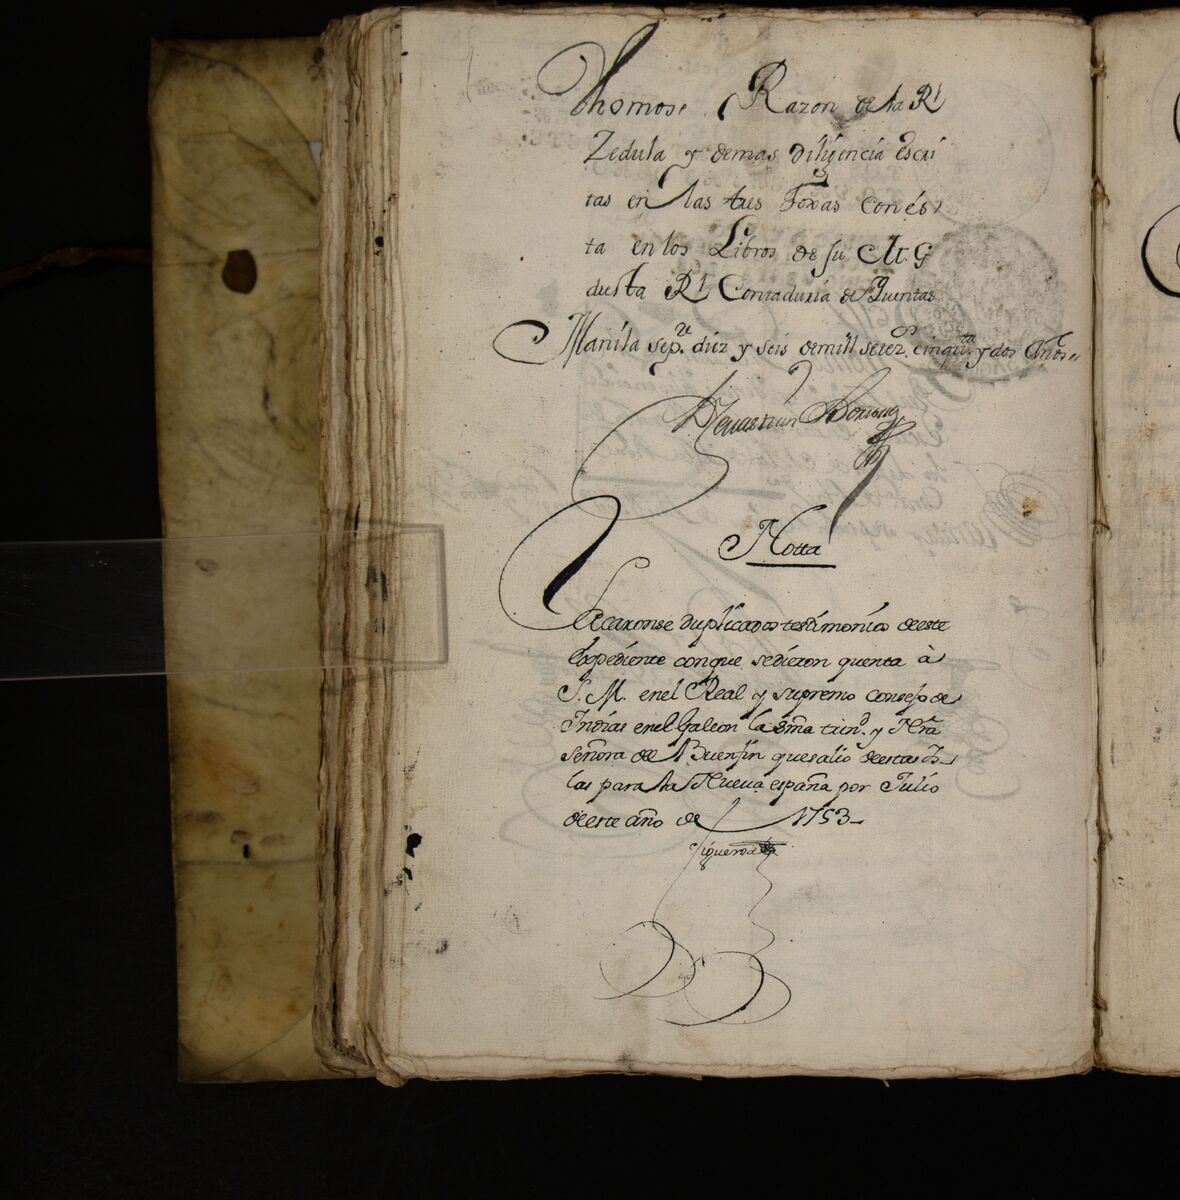 Thomose Razon de la Rl
Zedula y demas diligencia Escri
tas en las tres Foxas con és
ta en los Libros de su M. G
duesta Rl Contaduria de Quentas
Manila sepre. diez y seis demill setezos. cinquta y dos Años
Sevastian
Notta
Sacaronse duplicados testimonios deeste
Expediente conque sedieron quenta à
S. M. enel Real y supremo consejo de
Indias enel Galeon la sma trind. y Nra
señora del Buenfin quesalio deestas Is
las para la Nueva españa por Julio
deeste año de 1753
figueroa